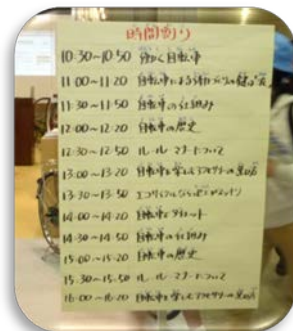 時間割り
10:30~10:50 自転車
11:00~11:20 自転車による
11:30~11:50 自転車の仕組み
12:00~12:20 自転車の歴史
12:30~12:50 ルール・マナーについて
13:00~13:20 自転車を楽しむアクセサリーの
13:30~13:50
14:00~14:20 自転車とダイエット
14:30~14:50 自転車の仕組み
15:00~15:20 自転車の歴史
15:30~15:50 ルール・マナーについて
16:00~16:20 自転車を楽しむアクセサリーの